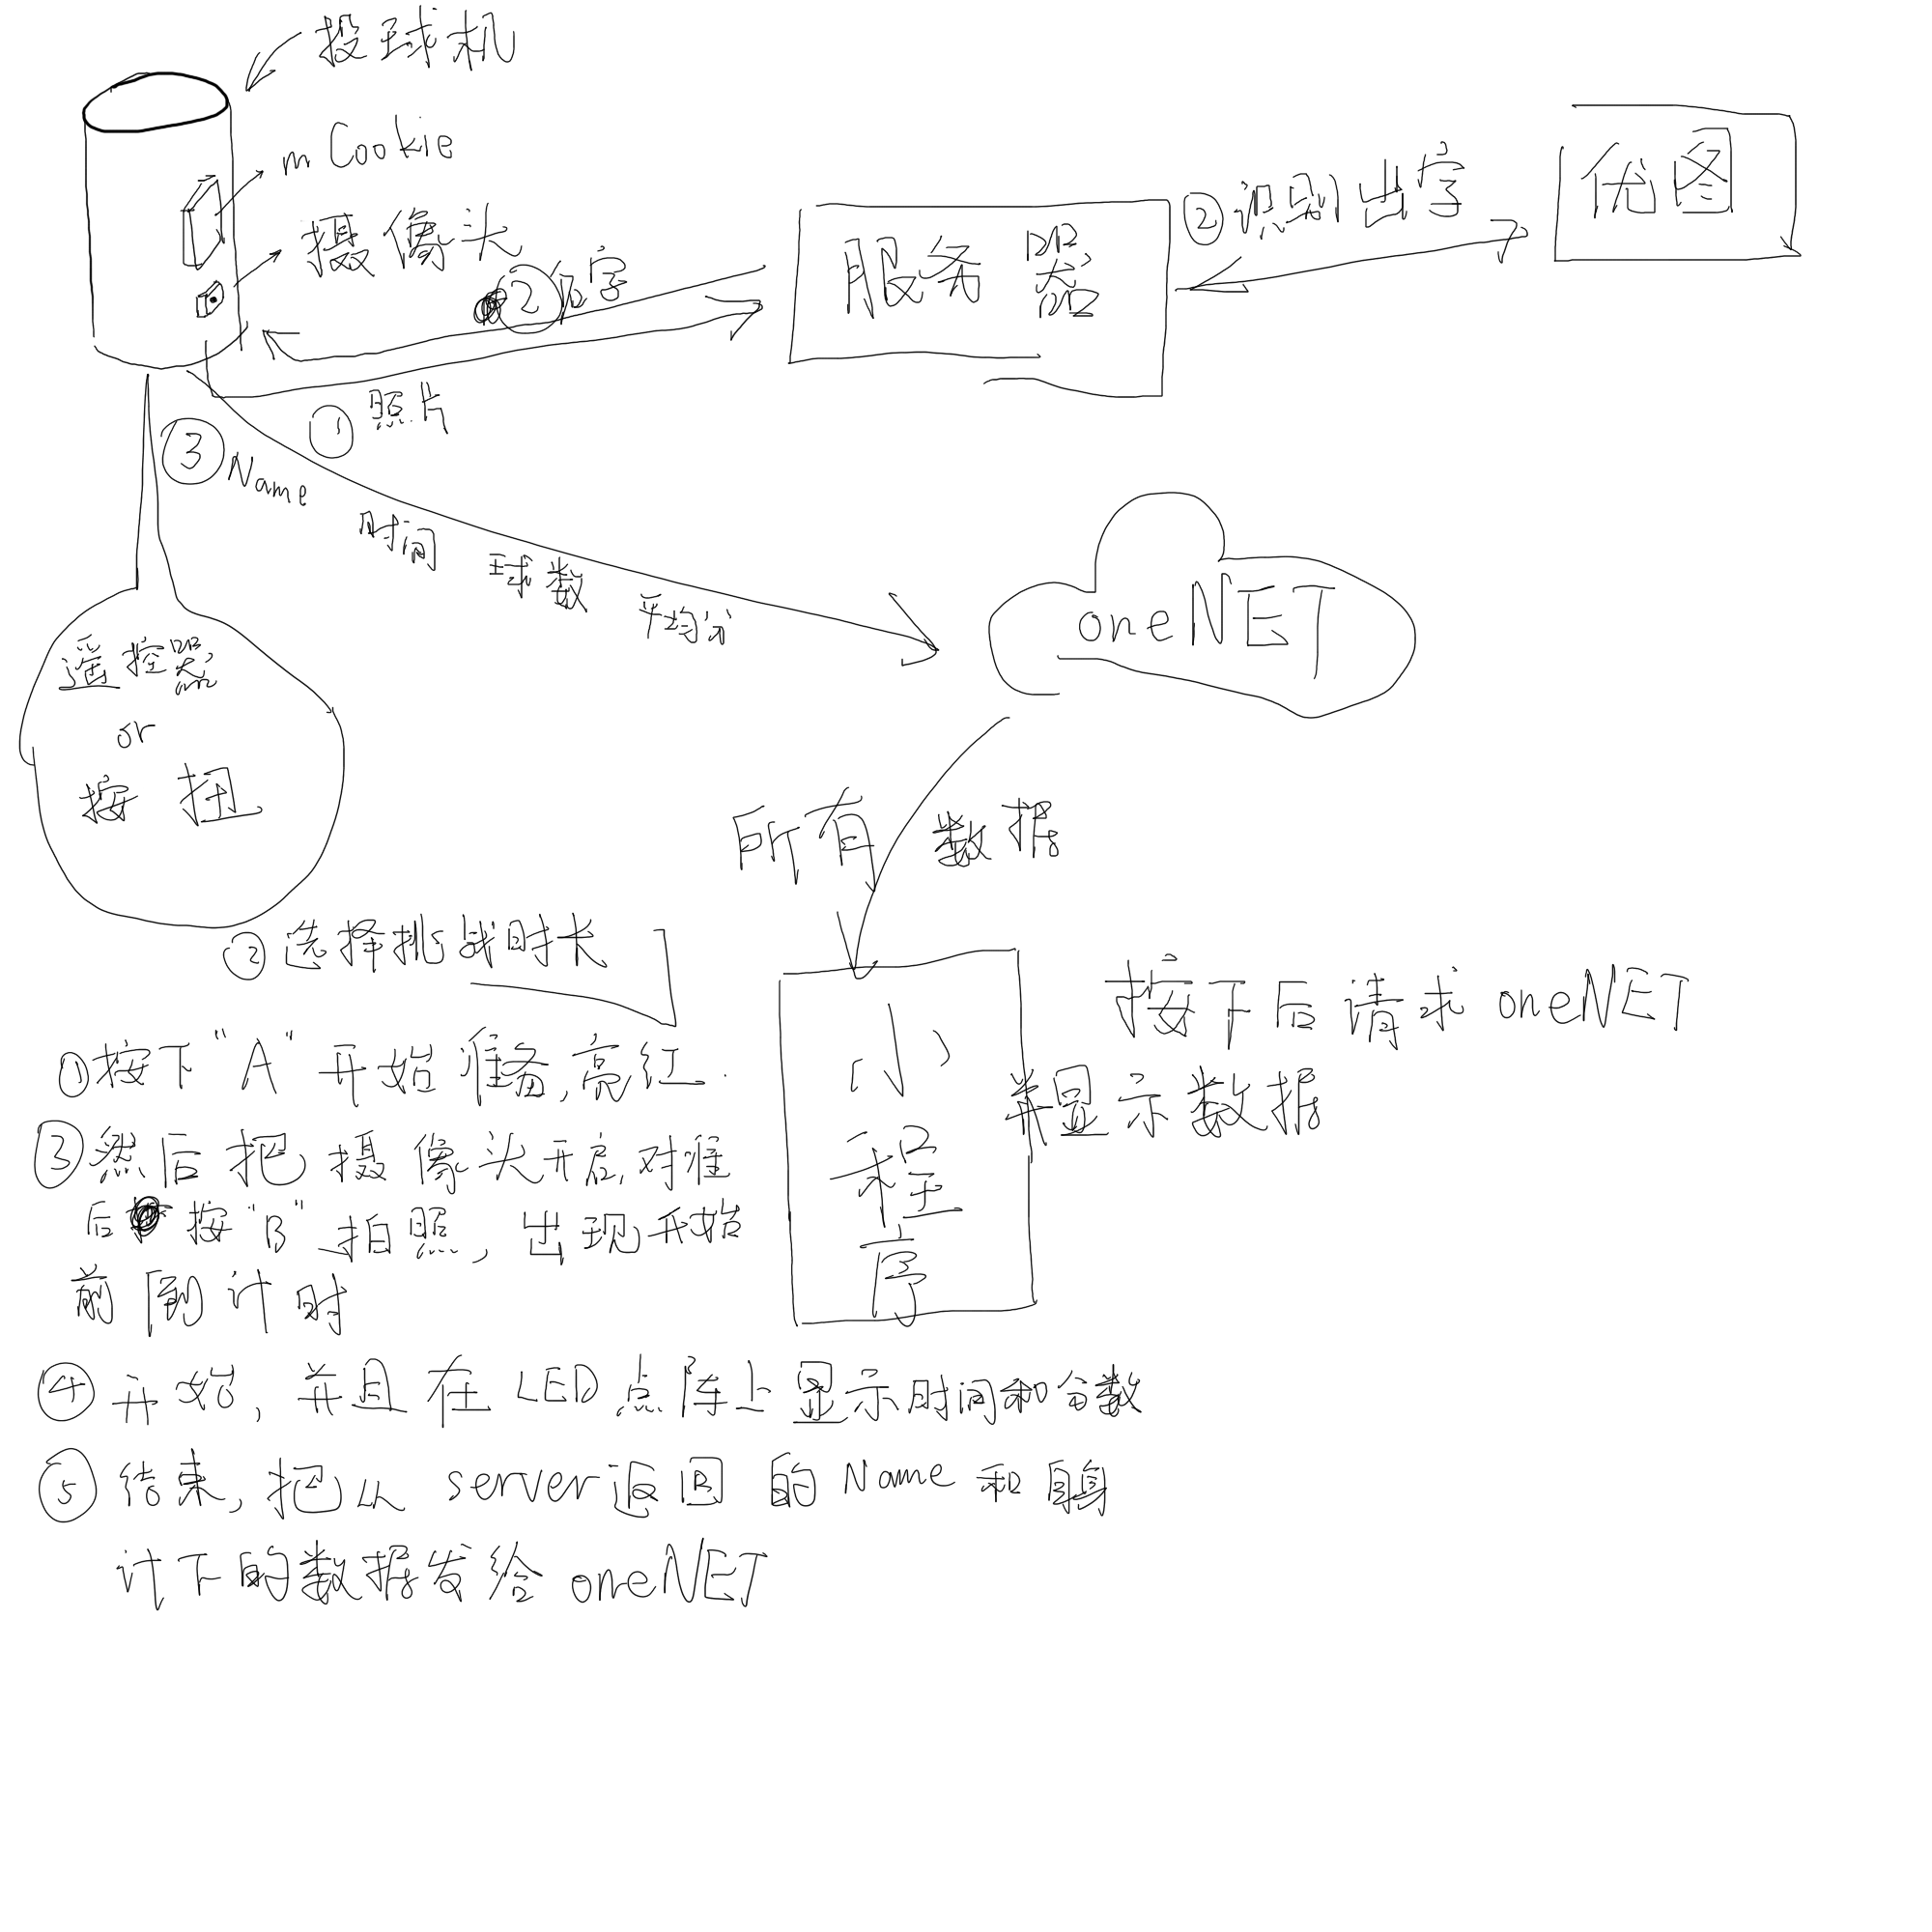 投球机
mCookie
摄像头
②识别出字
优图
服务器
②
字
①照片
③Name 时间 球数 平均分
oneNET
遥控器
or
按扭
所有数据
②选择挑战时长
小程序
按下后请求oneNET
并显示数据
①按下"A"开始准备,亮红.
③然后把摄像头开启,对准
后按"B"拍照,出现开始
前倒计时
④开始,并且在LED点阵上显示时间和分数
⑤结束,把从server返回的Name和自身
计下的数据发给oneNET